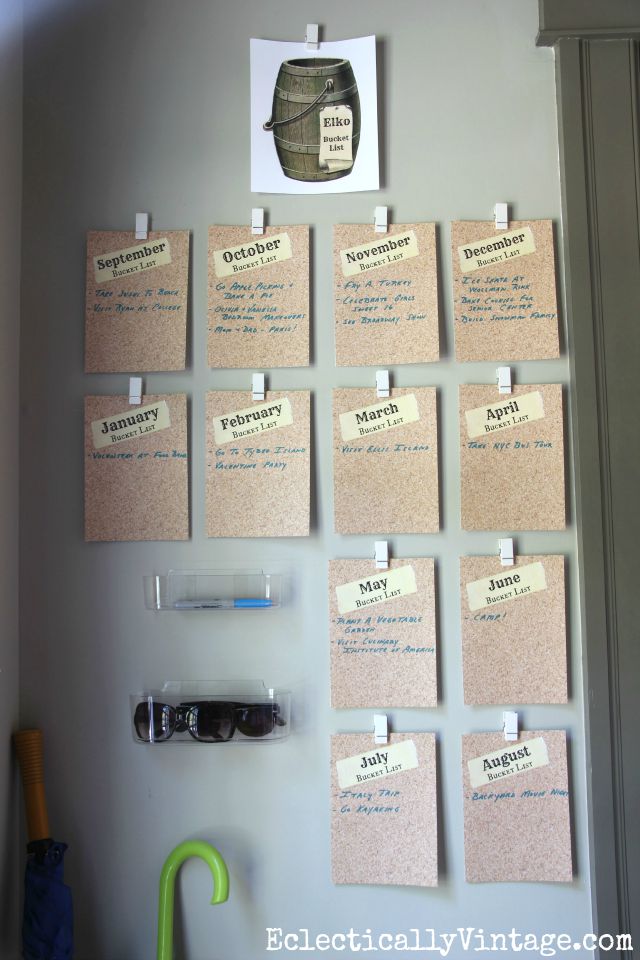 Elko
Bucket
List
September
Bucket List
- Take Jules To Beach
- Visit Ryan at College
October
Bucket List
- Go Apple Picking +
Bake A Pie
- Olivia + Vanessa
Bedroom Makeovers
- Mom + Dad - Paris!
November
Bucket List
- Fry A Turkey
- Celebrate Girls
Sweet 16
- See Broadway Show
December
Bucket List
- Ice Skate At
Wollman Rink
- Bake Cookies For
Senior Center
- Build Snowman Family
January
Bucket List
- Volunteer at Food Bank
February
Bucket List
- Go To Tybee Island
- Valentine Party
March
Bucket List
- Visit Ellis Island
April
Bucket List
- Take NYC Bus Tour
May
Bucket List
- Plant A Vegetable
Garden
- Visit Culinary
Institute of America
June
Bucket List
- Camp!
July
Bucket List
- Italy Trip
- Go Kayaking
August
Bucket List
- Backyard Movie Night
EclecticallyVintage.com